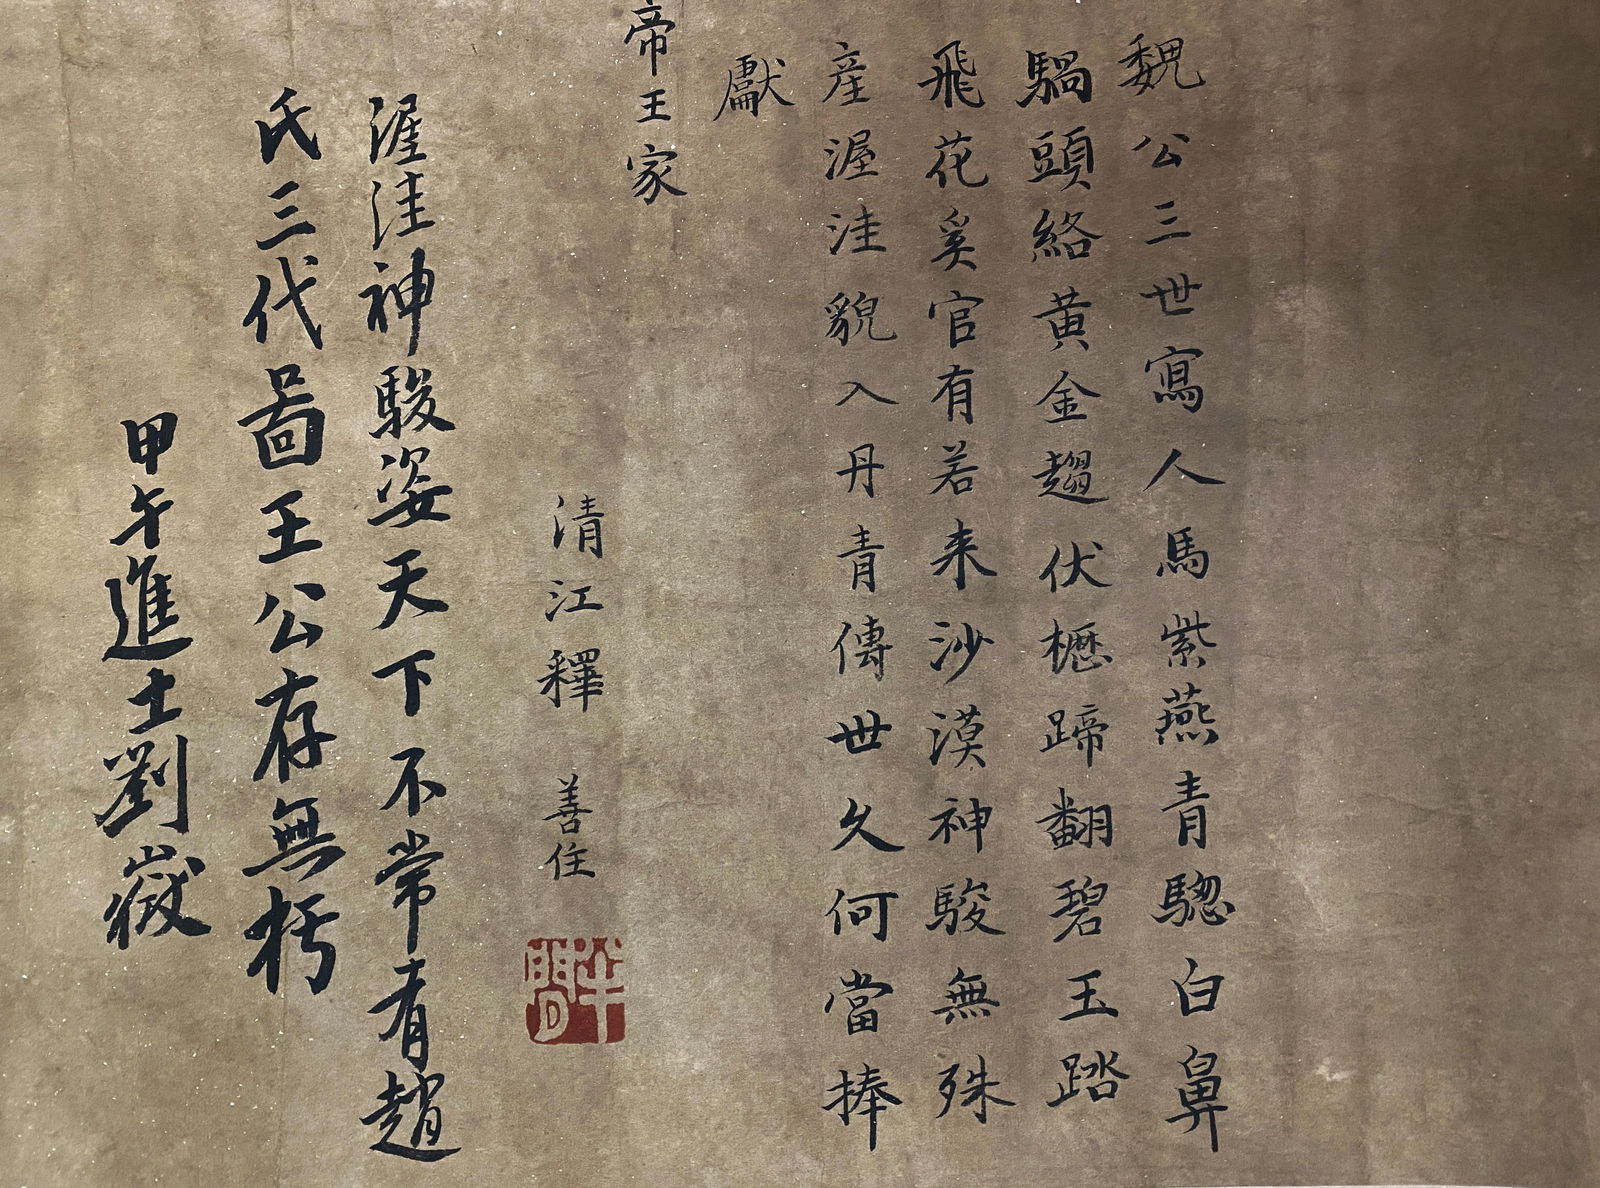 魏公三世寫人馬紫燕青騘白鼻
騧頭絡黄金趨伏櫪蹄翻碧玉踏
飛花奚官有若来沙漠神駿無殊
産渥洼貌入丹青傳世久何當捧
獻
帝王家
清江釋 善住
渥洼神駿姿天下不常有趙
氏三代啚王公存無朽
甲午進士劉